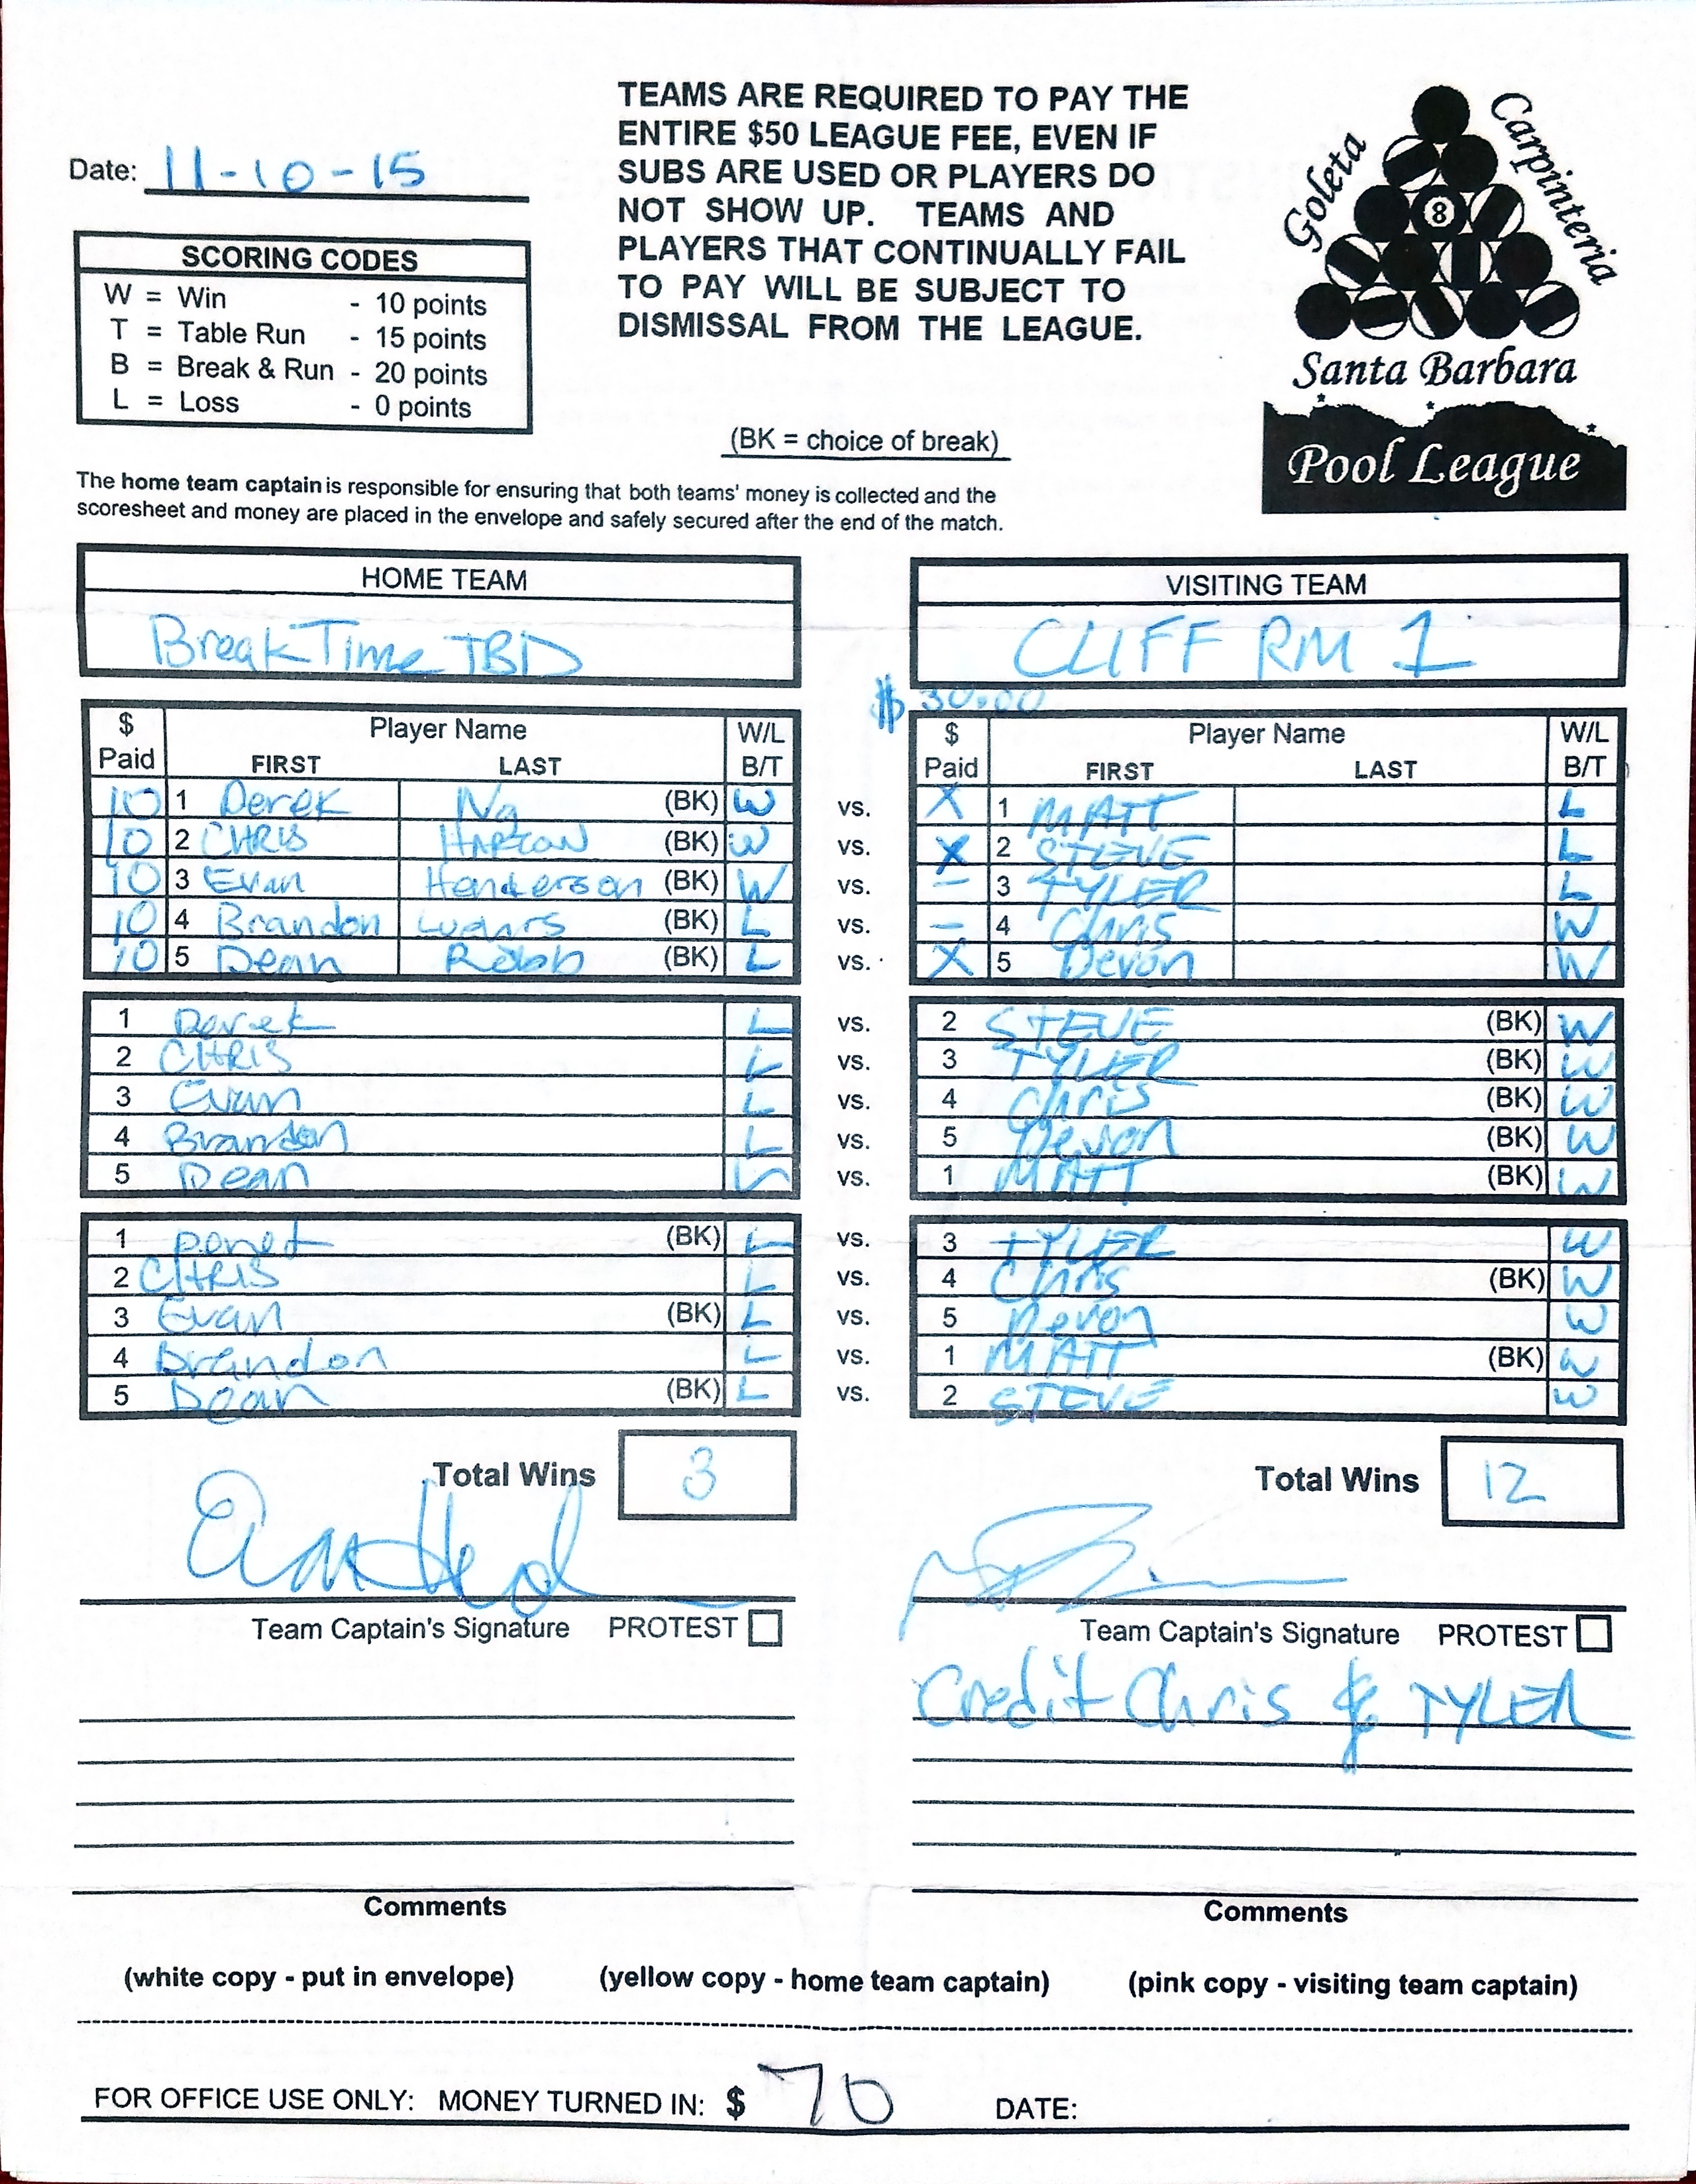 TEAMS ARE REQUIRED TO PAY THE
ENTIRE $50 LEAGUE FEE, EVEN IF
SUBS ARE USED OR PLAYERS DO
NOT SHOW UP. TEAMS AND
PLAYERS THAT CONTINUALLY FAIL
TO PAY WILL BE SUBJECT TO
DISMISSAL FROM THE LEAGUE.
Goleta
Carpinteria
8
Santa Barbara
Pool League
Date: 11-10-15
SCORING CODES
W = Win - 10 points
T = Table Run - 15 points
B = Break & Run - 20 points
L = Loss - 0 points
(BK = choice of break)
The home team captain is responsible for ensuring that both teams' money is collected and the
scoresheet and money are placed in the envelope and safely secured after the end of the match.
HOME TEAM VISITING TEAM
BreakTime TBD CLIFF RM 1
$ 30.00
$ Player Name W/L $ Player Name W/L
Paid FIRST LAST B/T Paid FIRST LAST B/T
10 1 Derek Ng (BK) W vs. X 1 MATT L
10 2 CHRIS (BK) W vs. X 2 STEVE L
10 3 Evan Henderson (BK) W vs. – 3 TYLER L
10 4 Brandon (BK) L vs. – 4 Chris W
10 5 Dean Robb (BK) L vs. X 5 Devon W
1 Derek L vs. 2 STEVE (BK) W
2 CHRIS L vs. 3 TYLER (BK) W
3 Evan L vs. 4 Chris (BK) W
4 Brandon L vs. 5 Devon (BK) W
5 Dean L vs. 1 MATT (BK) W
1 (BK) L vs. 3 TYLER W
2 CHRIS L vs. 4 Chris (BK) W
3 Evan (BK) L vs. 5 Devon W
4 Brandon L vs. 1 MATT (BK) W
5 Dean (BK) L vs. 2 STEVE W
Total Wins 3 Total Wins 12
Team Captain's Signature PROTEST Team Captain's Signature PROTEST
Credit Chris & TYLER
Comments Comments
(white copy - put in envelope) (yellow copy - home team captain) (pink copy - visiting team captain)
FOR OFFICE USE ONLY: MONEY TURNED IN: $ 70 DATE: